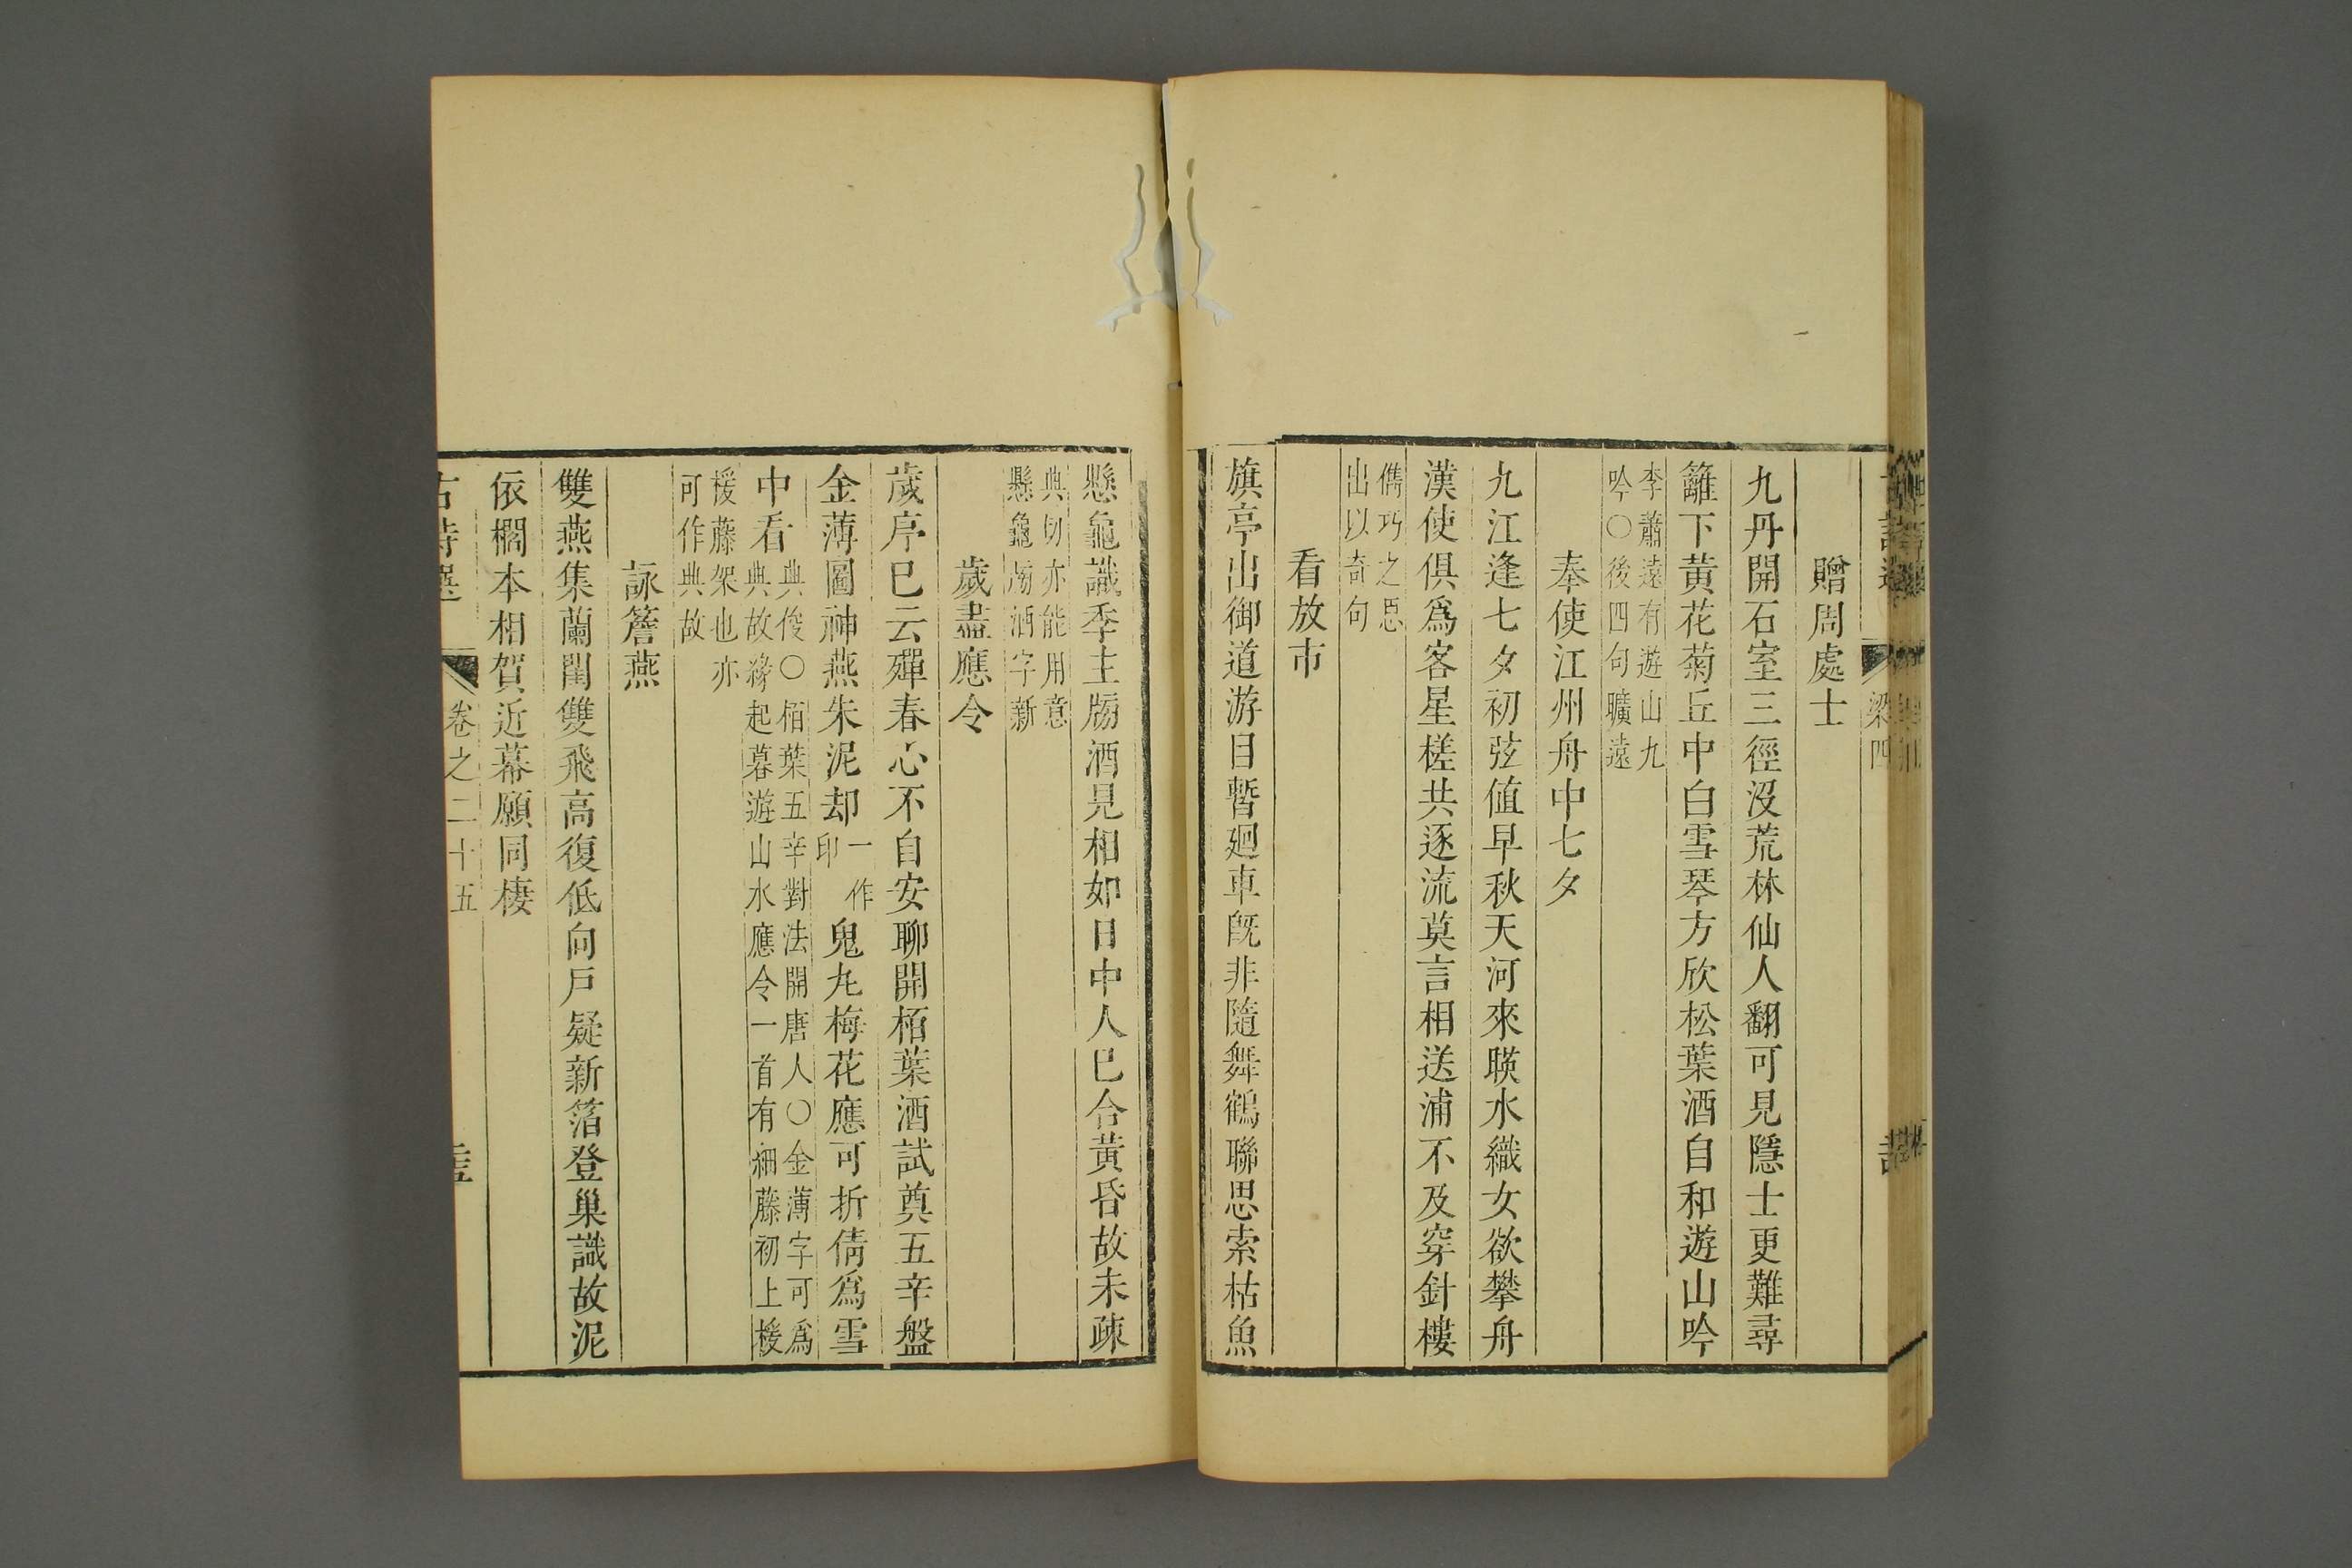 梁四
贈周處士
九丹開石室三徑沒荒林仙人翻可見隱士更難尋
籬下黃花菊丘中白雪琴方欣松葉酒自和遊山吟
李蕭遠有遊山九
吟〇後四句曠遠
奉使江州舟中七夕
九江逢七夕初弦值早秋天河來暎水織女欲攀舟
漢使俱爲客星槎共逐流莫言相送浦不及穿針樓
儁巧之思
出以奇句
看放市
旗亭出御道游目暫廻車旣非隨舞鶴聯思索枯魚
懸龜識季主牓酒見相如日中人已合黃昏故未疎
典切亦能用意
懸龜牓酒字新
歲盡應令
歲序已云殫春心不自安聊開栢葉酒試奠五辛盤
金薄圖神燕朱泥却一作
印
鬼丸梅花應可折倩爲雪
中看
典俊〇栢葉五辛對法開唐人〇金薄字可爲
典故緣起暮遊山水應令一首有細藤初上楥
楥藤架也亦
可作典故
詠簷燕
雙燕集蘭閨雙飛高復低向戸疑新箔登巢識故泥
依櫩本相賀近幕願同棲
古詩選
卷之二十五